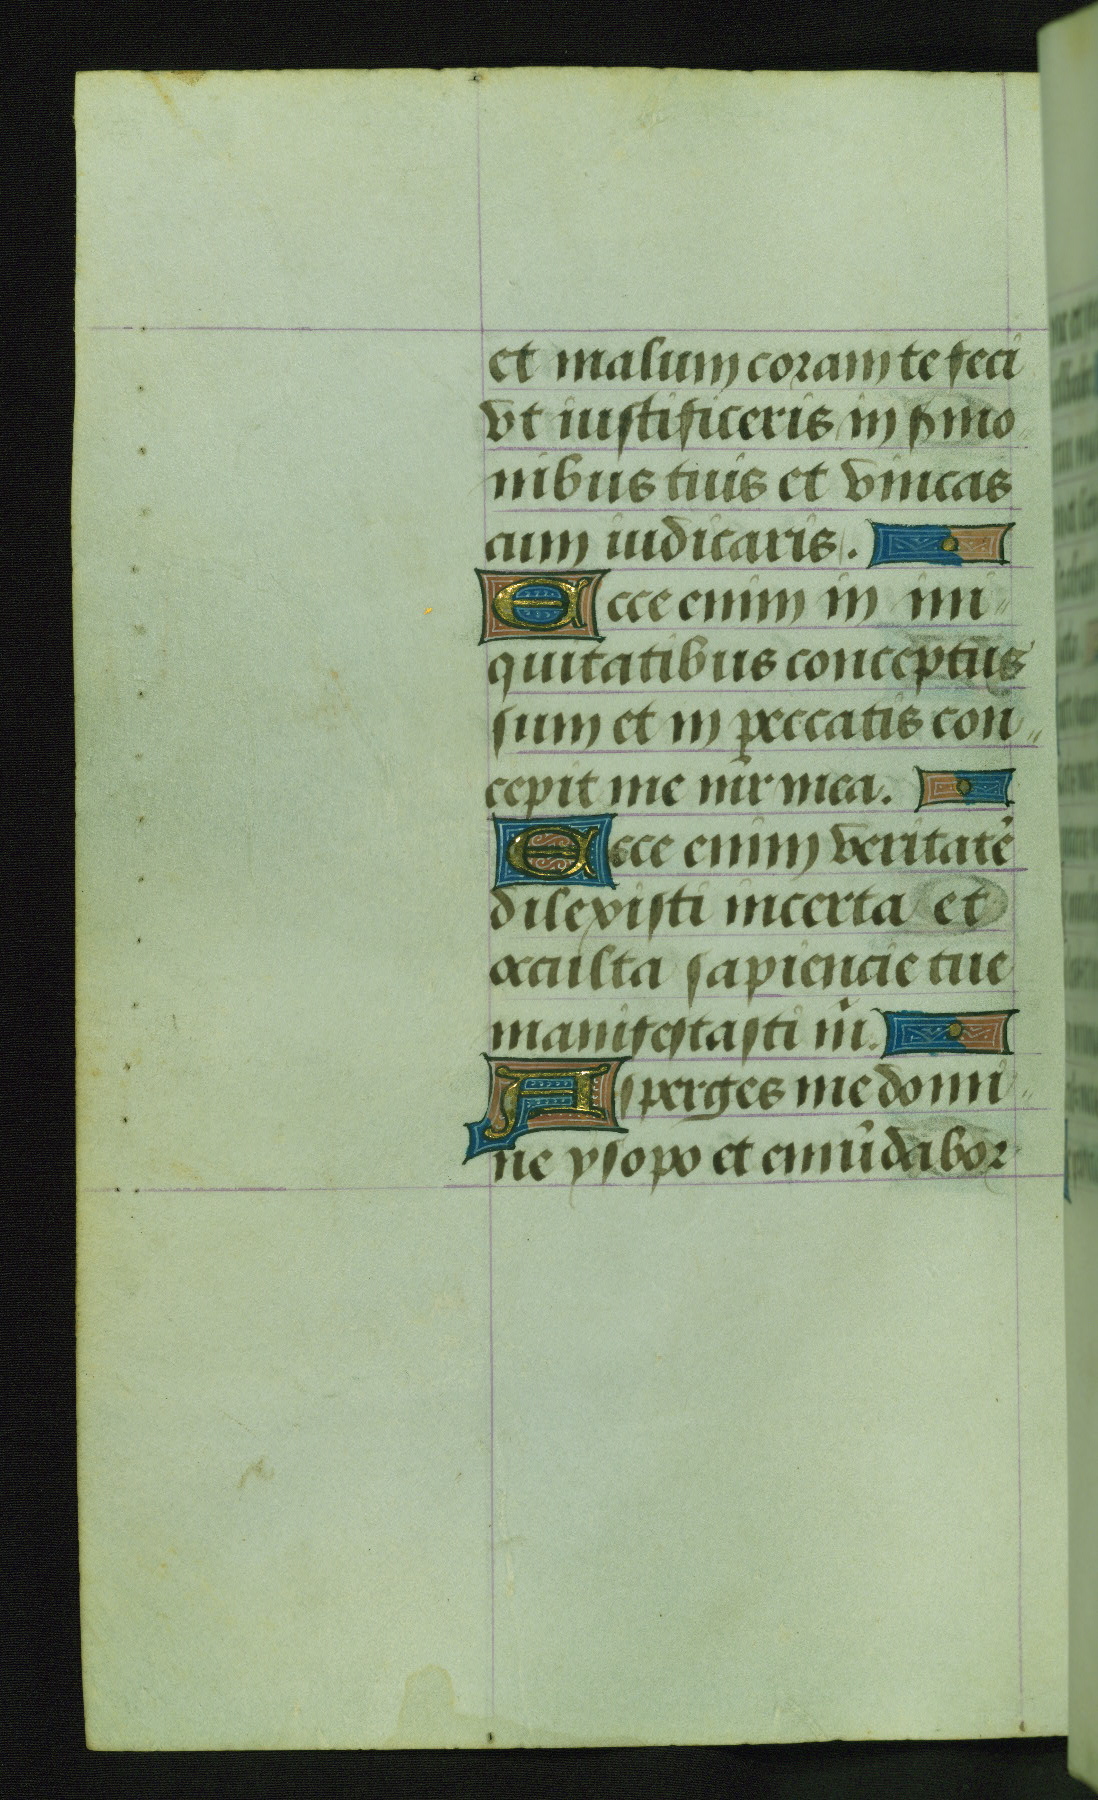 et malum coram te feci
vt iustificeris in s̄mo
nibus tuis et vincas
cum iudicaris.
Ecce enim in ini
quitatibus conceptus
sum et in peccatis con
cepit me mr̄ mea.
Ecce enim veritatē
dilexisti incerta et
occulta sapiencie tue
manifestasti m̄.
Asperges me domi
ne ysopo et emūdabor